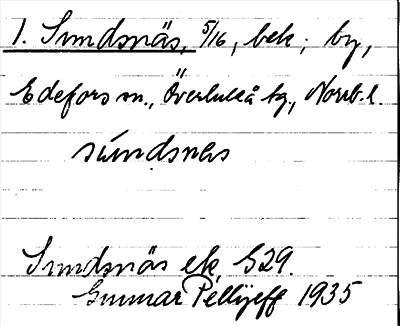 1. Sundsnäs, 5/16, bek; by,
Edefors sn., Överluleå tg., Norrb. l.
súndsnas
Sundsnäs ek. S29.
Gunnar Pellijeff 1935